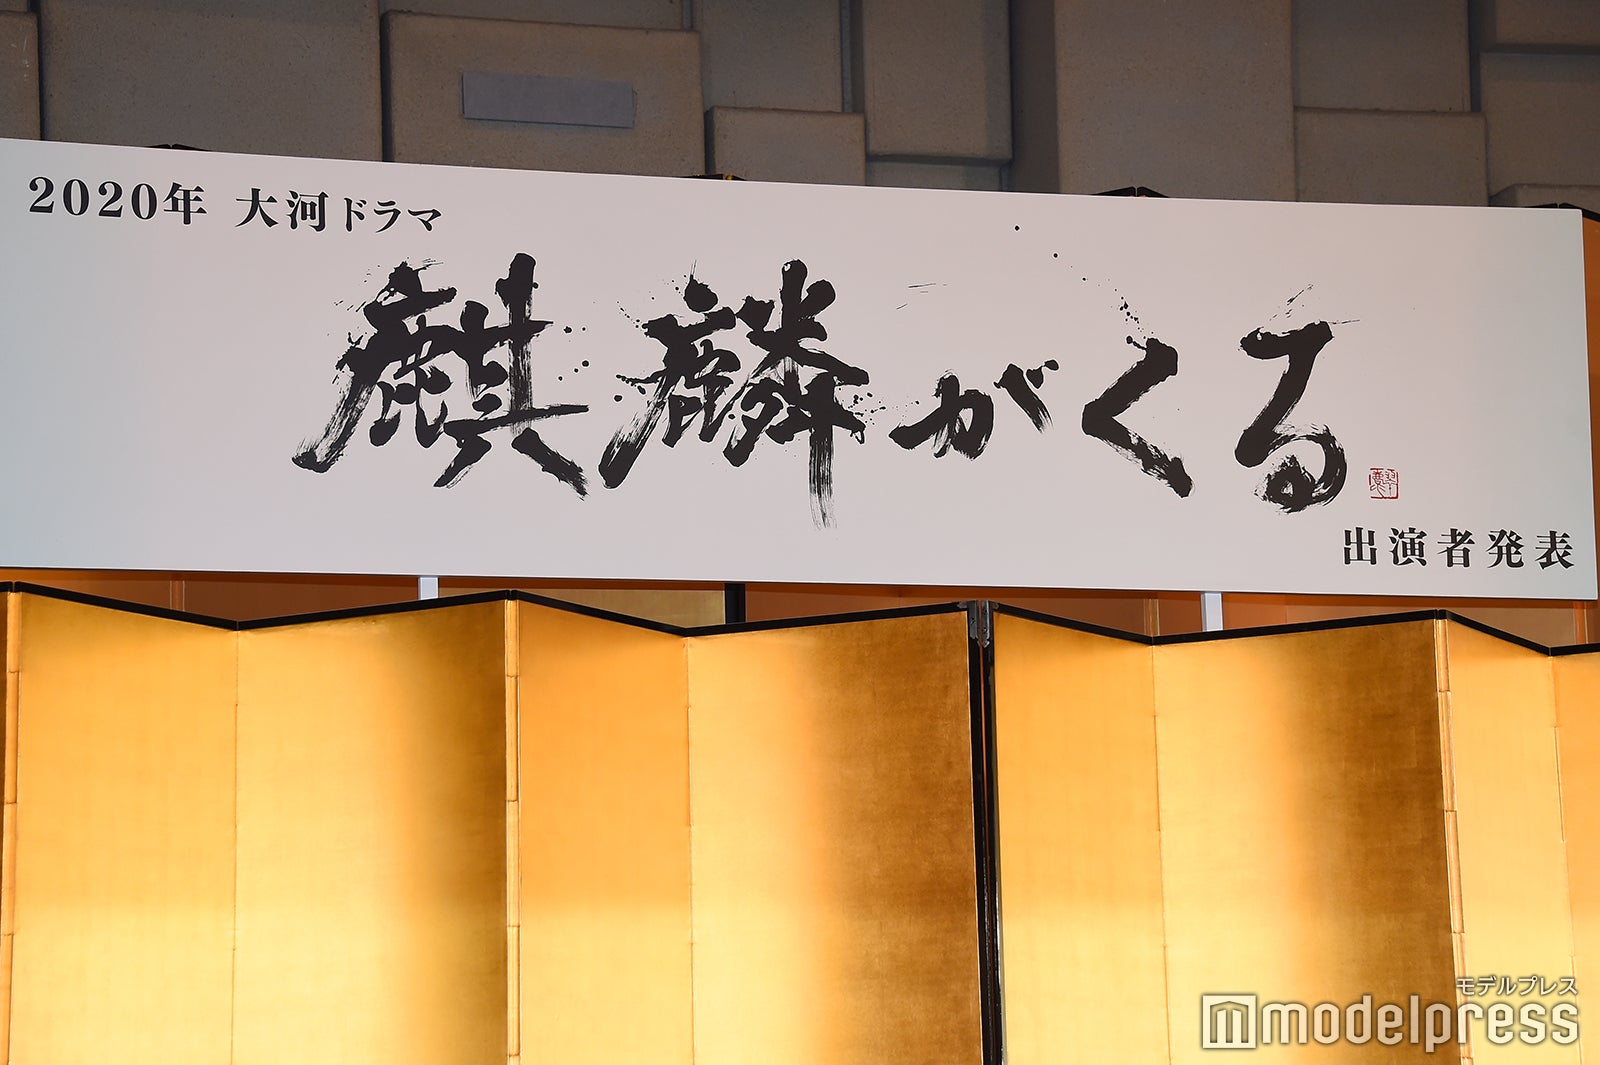 2020年 大河ドラマ
麒麟がくる
出演者発表
モデルプレス
modelpress